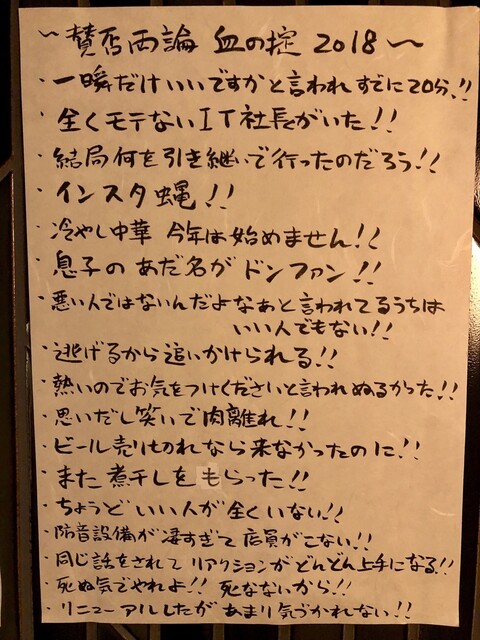 ～賛否両論 血の掟 2018～
・一瞬だけいいですかと言われすでに20分!!
・全くモテないIT社長がいた!!
・結局何を引き継いで行ったのだろう!!
・インスタ蝿!!
・冷やし中華 今年は始めません!!
・息子のあだ名がドンファン!!
・悪い人ではないんだよなぁと言われてるうちは
いい人でもない!!
・逃げるから追いかけられる!!
・熱いのでお気をつけくださいと言われぬるかった!!
・思いだし笑いで肉離れ!!
・ビール売り切れなら来なかったのに!!
・また煮干しをもらった!!
・ちょうどいい人が全くいない!!
・防音設備が凄すぎて店員がこない!!
・同じ話をされてリアクションがどんどん上手になる!!
・死ぬ気でやれよ!! 死なないから!!
・リニューアルしたがあまり気づかれない!!